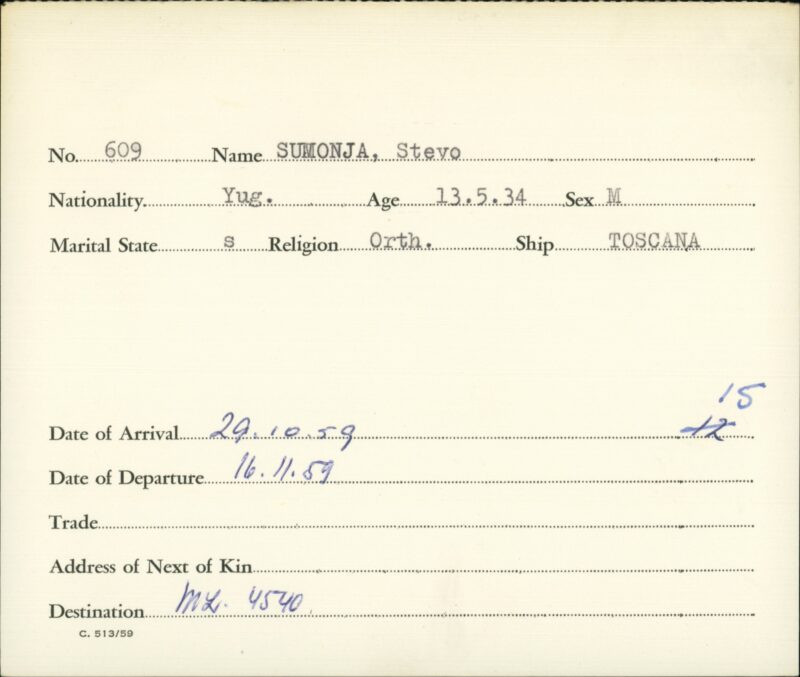 No. 609 Name SUMONJA, Stevo
Nationality. Yug. Age 13.5.34 Sex M
Marital State s Religion Orth. Ship TOSCANA
15
Date of Arrival 29.10.59 12
Date of Departure 16.11.59
Trade
Address of Next of Kin
Destination ML. 4540
C. 513/59